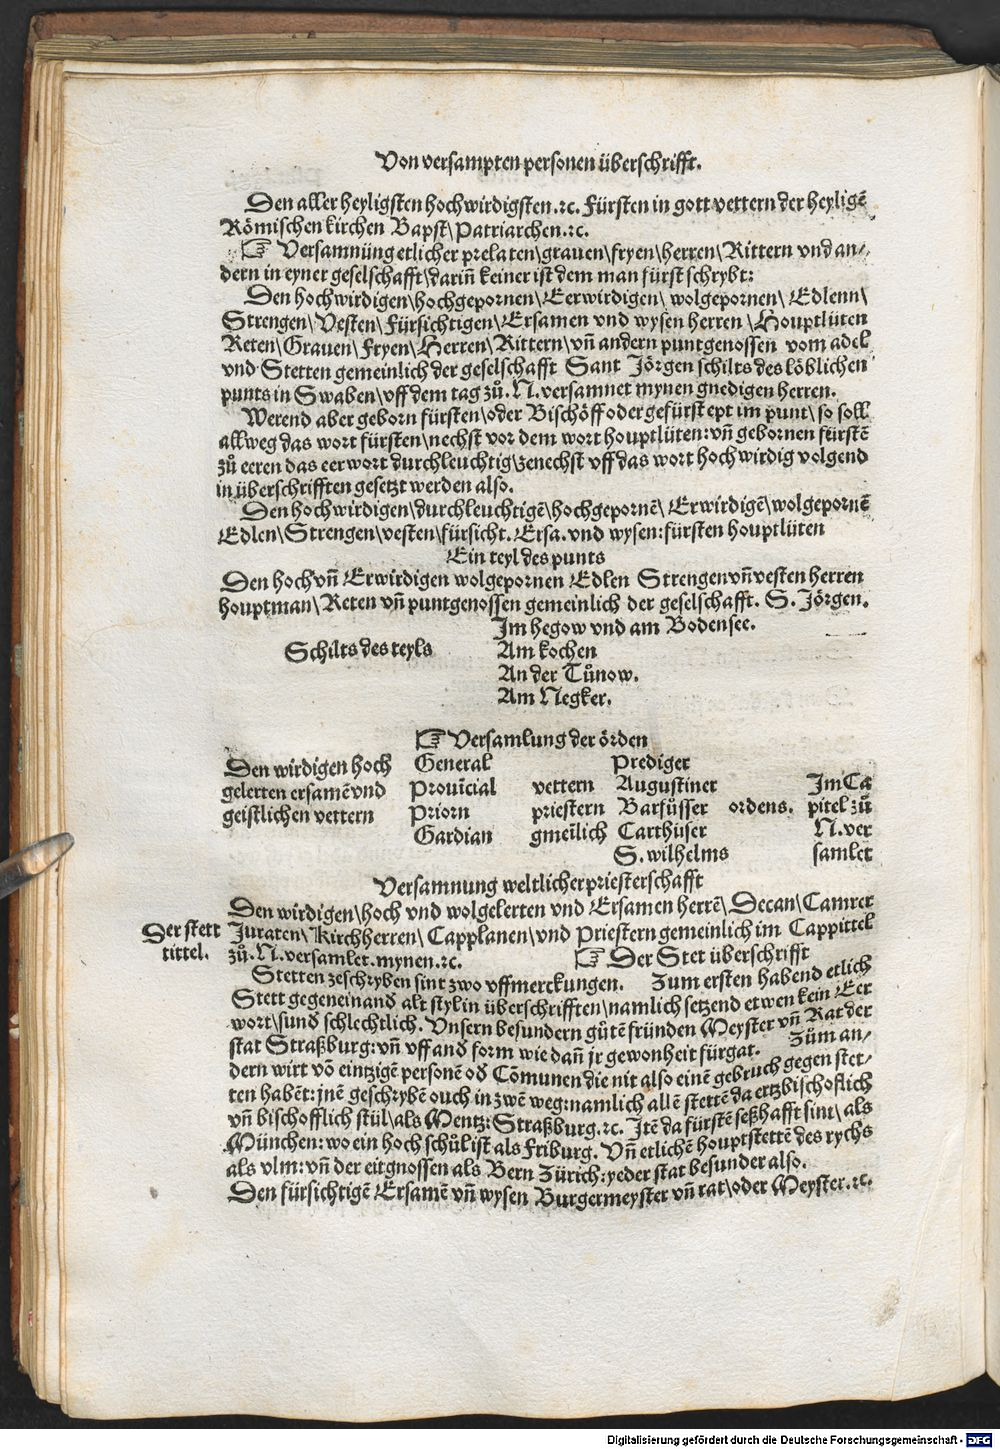 Von versampten personen überschrifft.
Den aller heyligsten hochwirdigsten.⁊c. Fürsten in gott vettern der heyligē
Römischen kirchen Bapst\ Patriarchen.⁊c.
☞ Versamnūng etlicher prelaten\ grauen\ fryen\ herren\ Rittern vnd an⸗
dern in eyner geselschafft\ dariñ keiner ist dem man fürst schrybt:
Den hochwirdigen\ hochgepornen\ Eerwirdigen\ wolgepornen\ Edlenn\
Strengen\ Vesten\ Fürsichtigen\ Ersamen vnd wysen herren \ Houptlüten
Reten\ Grauen\ Fryen\ Herren\ Rittern\ vñ andern puntgenossen vom adel
vnd Stetten gemeinlich der geselschafft Sant Jörgen schilts des löblichen
punts in Swaben\ vff dem tag zů. N. versamnet mynen gnedigen herren.
Werend aber geborn fürsten\ oder Bischöff oder gefürst ept im punt\ so soll
allweg das wort fürsten\ nechst vor dem wort houptlüten: vñ gebornen fürstē
zů eeren das eerwort durchleuchtig\ zenechst vff das wort hochwirdig volgend
in überschrifften gesetzt werden also.
Den hochwirdigen\ durchleuchtigē\ hochgepornē\ Erwirdigē\ wolgepornē
Edlen\ Strengen\ vesten\ fürsicht. Ersa. vnd wysen: fürsten houptlüten
Ein teyl des punts
Den hoch vñ Erwirdigen wolgepornen Edlen Strengen vñ vesten herren
houptman\ Reten vñ puntgenossen gemeinlich der geselschafft. S. Jörgen.
Im hegow vnd am Bodensee.
Schilts des teyls Am kochen
An der Tůnow.
Am Negker.
☞ Versamlung der örden
Den wirdigen hoch General Prediger
gelerten ersamē vnd Prouīcial vettern Augustiner Im Ca
geistlichen vettern Priorn priestern Barfüsser ordens. pitel zů
Gardian gmeīlich Carthüser N. ver
S. wilhelms samlet
Versamnung weltlicher priesterschafft
Den wirdigen\ hoch vnd wolgelerten vnd Ersamen herrē\ Decan\ Camrer
Der stett Juraten\ Kirchherren\ Capplanen\ vnd Priestern gemeinlich im Cappittel
tittel. zů. N. versamlet. mynen.⁊c. ☞ Der Stet überschrifft
Stetten zeschryben sint zwo vffmerckungen. Zum ersten habend etlich
Stett gegeneinand alt styl in überschrifften\ namlich setzend etwen kein Eer
wort\ sund schlechtlich. Vnsern besundern gůtē fründen Meyster vñ Rat der
stat Straßburg: vñ vff and form wie dañ jr gewonheit fürgat. Zům an⸗
dern wirt vō eintzigē personē od Cōmunen die nit also einē gebruch gegen stet⸗
ten habēt: jnē geschrybē ouch in zwē weg: namlich allē stettē da ertzbischoflich
vñ bischofflich stül\ als Mentz: Straßburg.⁊c. Jtē da fürstē seßhafft sint\ als
München: wo ein hoch schůl ist als Friburg. Vñ etlichē houptstettē des rychs
als vlm: vñ der eitgnossen als Bern Zürich: yeder stat besunder also.
Den fürsichtigē Ersamē vñ wysen Burgermeyster vñ rat\ oder Meyster.⁊c.
Digitalisierung gefördert durch die Deutsche Forschungsgemeinschaft - DFG